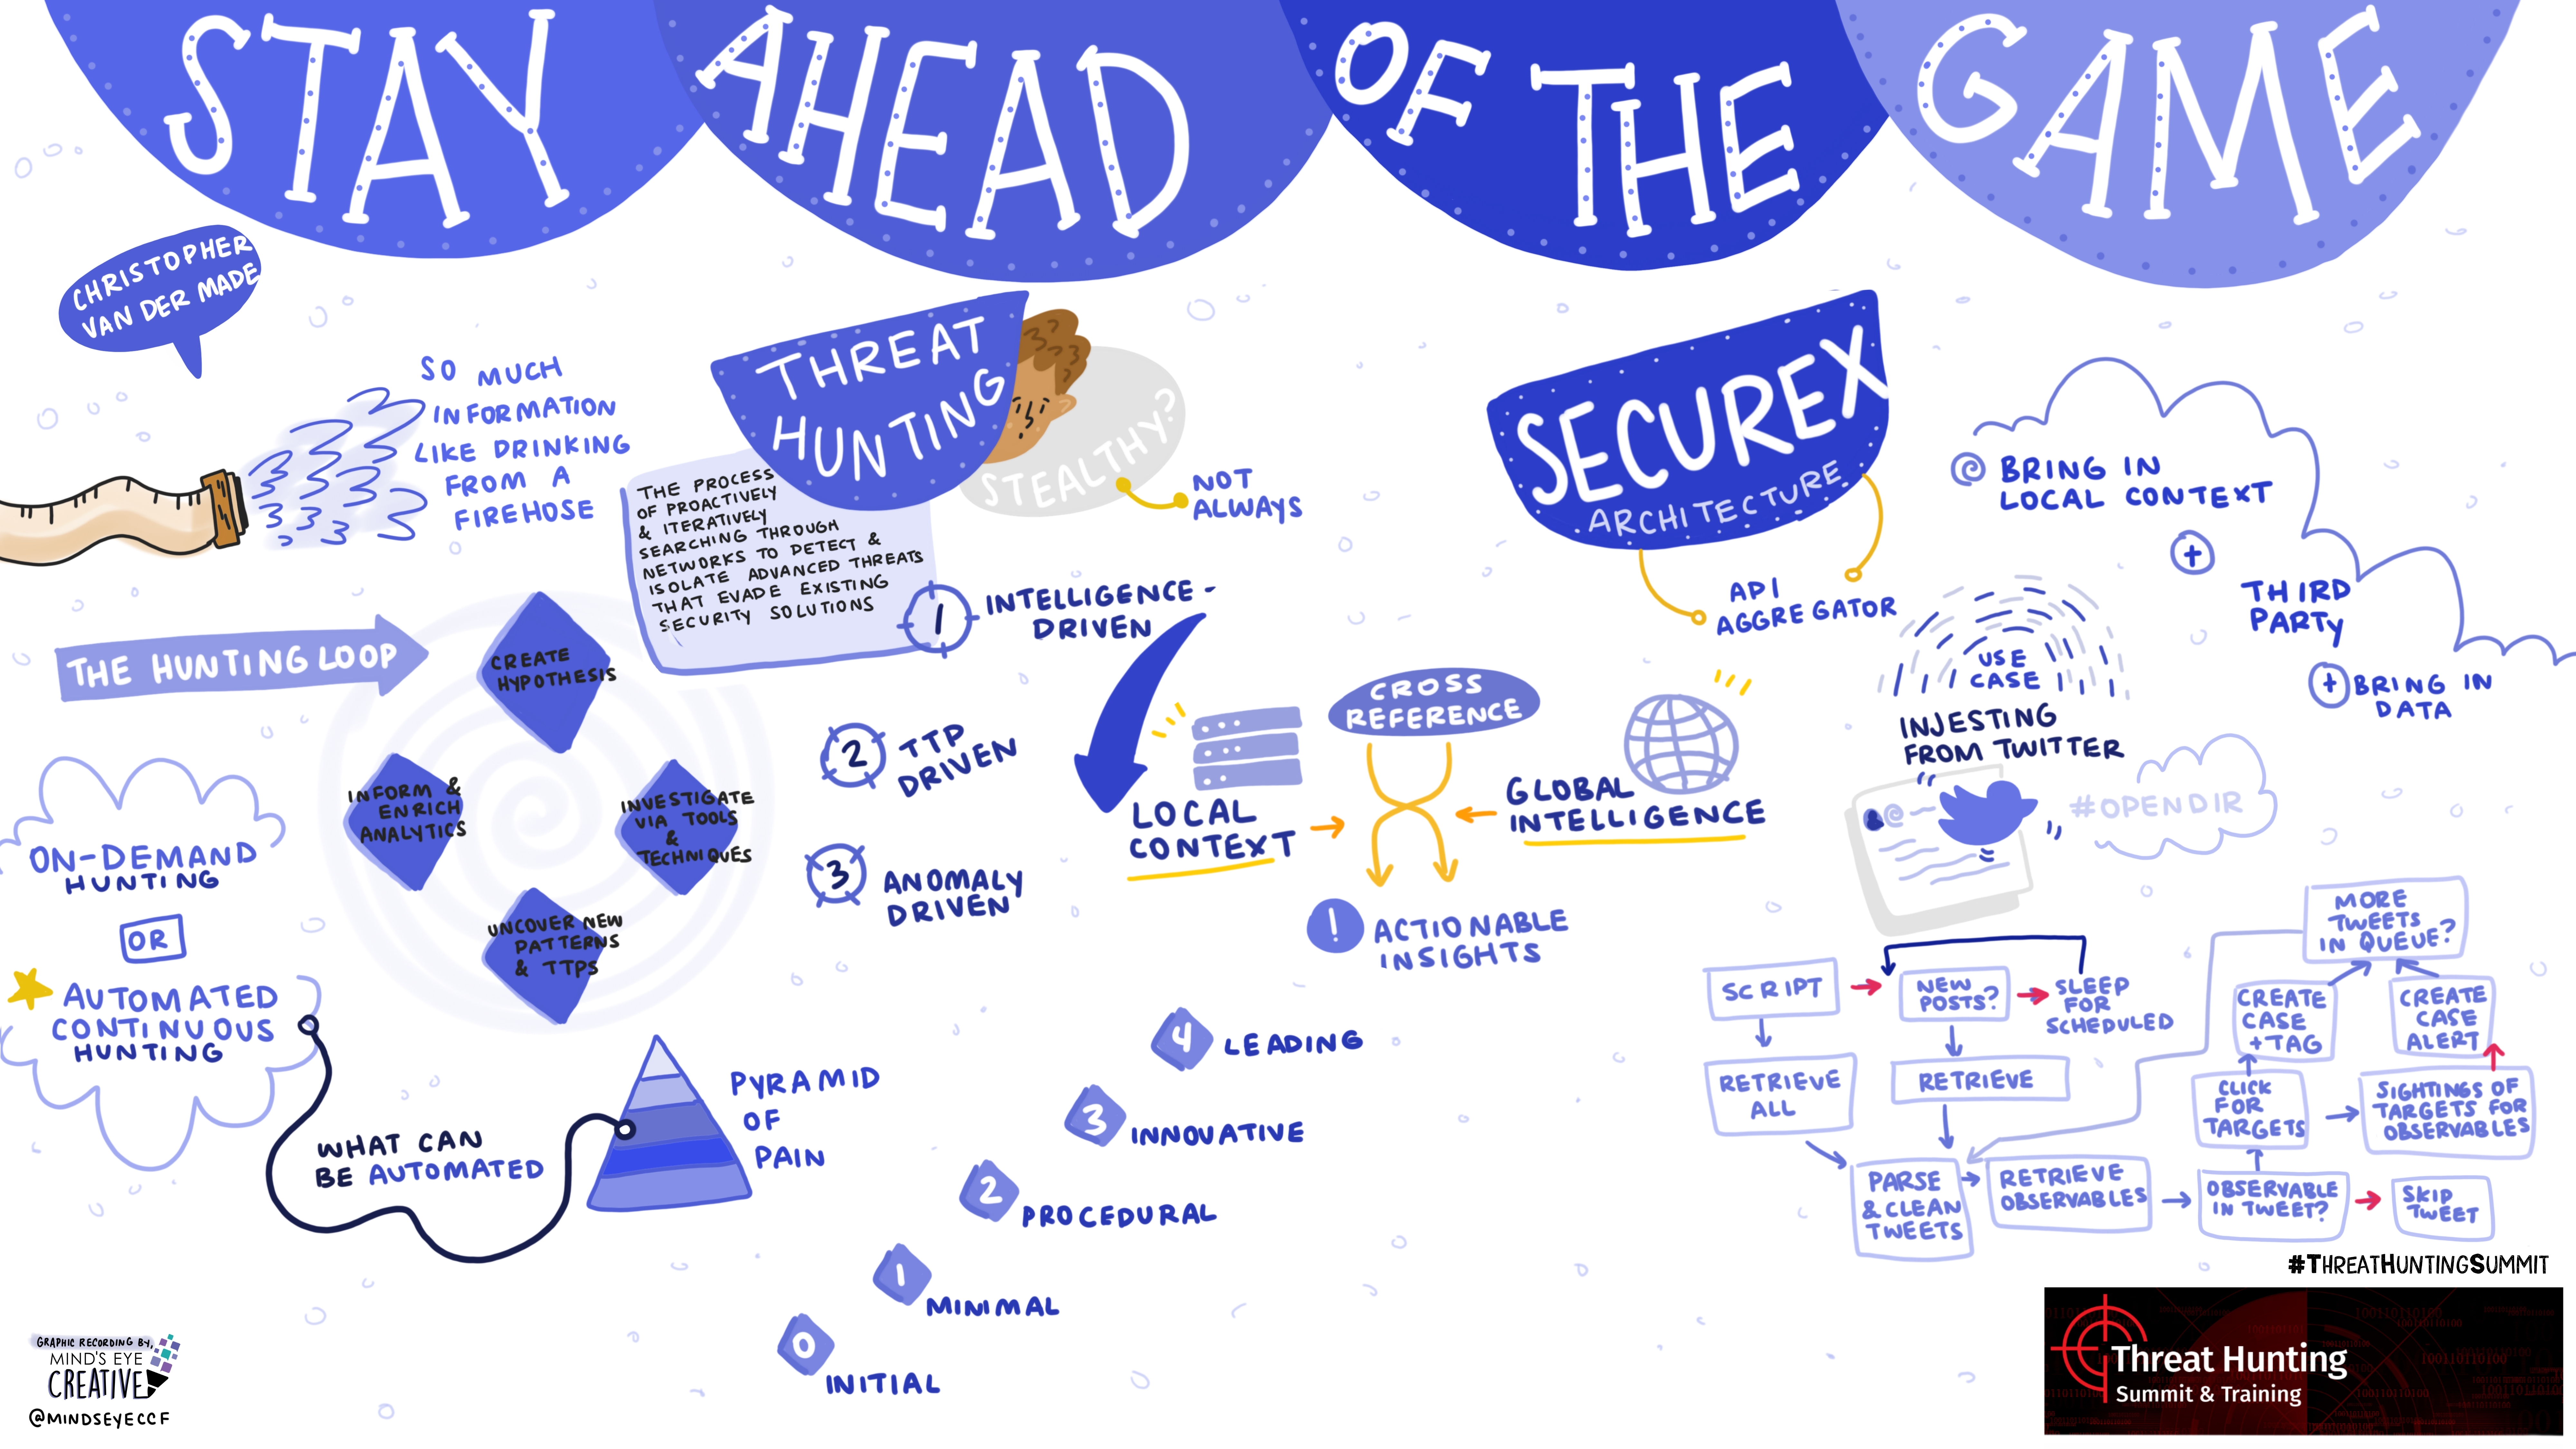 STAY AHEAD OF THE GAME
CHRISTOPHER
VAN DER MADE
SO MUCH
INFORMATION
LIKE DRINKING
FROM A
FIREHOSE
THREAT
HUNTING
STEALTHY?
NOT
ALWAYS
THE PROCESS
OF PROACTIVELY
& ITERATIVELY
SEARCHING THROUGH
NETWORKS TO DETECT &
ISOLATE ADVANCED THREATS
THAT EVADE EXISTING
SECURITY SOLUTIONS
THE HUNTING LOOP
CREATE
HYPOTHESIS
INVESTIGATE
VIA TOOLS
&
TECHNIQUES
UNCOVER NEW
PATTERNS
& TTPS
INFORM &
ENRICH
ANALYTICS
ON-DEMAND
HUNTING
OR
AUTOMATED
CONTINUOUS
HUNTING
WHAT CAN
BE AUTOMATED
PYRAMID
OF
PAIN
1 INTELLIGENCE-
DRIVEN
2 TTP
DRIVEN
3 ANOMALY
DRIVEN
LOCAL
CONTEXT
CROSS
REFERENCE
GLOBAL
INTELLIGENCE
! ACTIONABLE
INSIGHTS
4 LEADING
3 INNOVATIVE
2 PROCEDURAL
1 MINIMAL
0 INITIAL
SECUREX
ARCHITECTURE
API
AGGREGATOR
BRING IN
LOCAL CONTEXT
+
THIRD
PARTY
+ BRING IN
DATA
USE
CASE
INJESTING
FROM TWITTER
@
#OPENDIR
SCRIPT
NEW
POSTS?
SLEEP
FOR
SCHEDULED
RETRIEVE
ALL
RETRIEVE
PARSE
& CLEAN
TWEETS
RETRIEVE
OBSERVABLES
OBSERVABLE
IN TWEET?
SKIP
TWEET
CLICK
FOR
TARGETS
SIGHTINGS OF
TARGETS FOR
OBSERVABLES
CREATE
CASE
+TAG
CREATE
CASE
ALERT
MORE
TWEETS
IN QUEUE?
#THREATHUNTINGSUMMIT
Threat Hunting
Summit & Training
GRAPHIC RECORDING BY,
MIND'S EYE
CREATIVE
@MINDSEYECCF